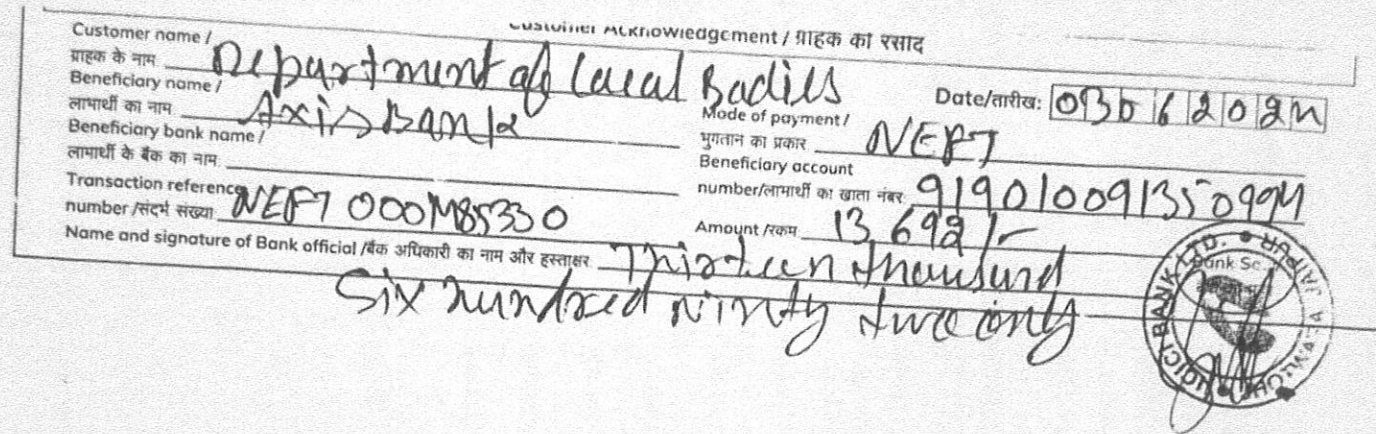 Customer Acknowledgement / ग्राहक की रसीद
Customer name /
ग्राहक के नाम Department of Local Bodies
Date/तारीख: 0306202
Beneficiary name /
लाभार्थी का नाम Axis Bank
Mode of payment /
भुगतान का प्रकार NEFT
Beneficiary bank name /
लाभार्थी के बैंक का नाम:
Beneficiary account
number/लाभार्थी का खाता नंबर:
Transaction reference
number /संदर्भ संख्या
Amount /रकम 13,692/-
Name and signature of Bank official /बैंक अधिकारी का नाम और हस्ताक्षर Thirteen thousand
Six hundred ninty two only
ICICI BANK LTD. JAIPUR